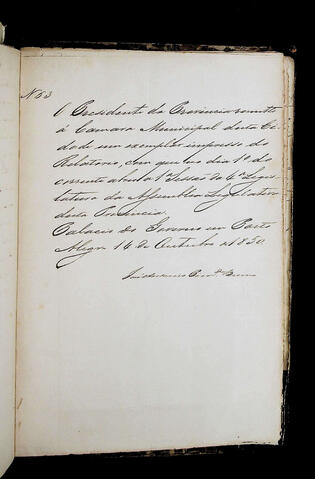 N 63
O Presidente da Provincia remette
á Camara Municipal desta Ci
dade um exemplar impresso do
Relatorio, com que no dia 1º do
corrente abrio a 1ª Sessão da 4ª Legis
latura da Assemblea Legislativa
desta Provincia.
Palacio do Governo em Porto
Alegre 14 de Outubro de 1850.